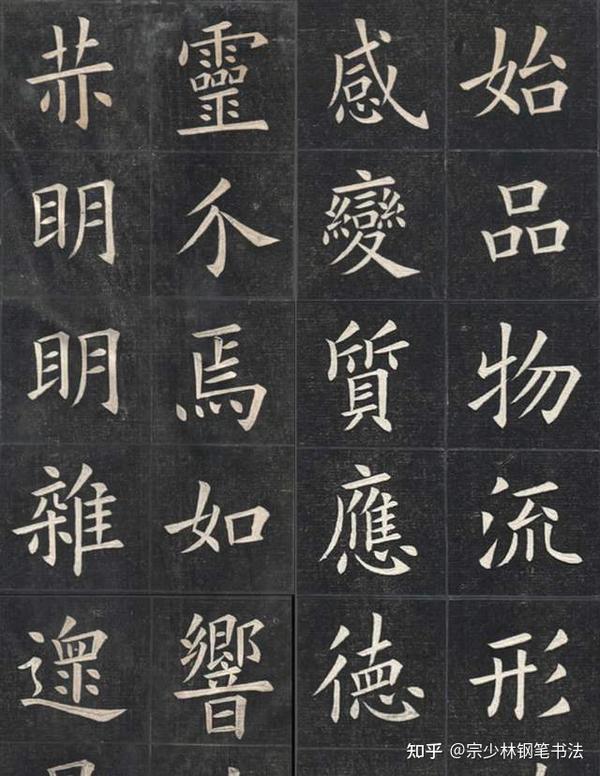 始品物流形
感變質應德
靈介焉如響
赫明明雜遝
知乎 @宗少林钢笔书法